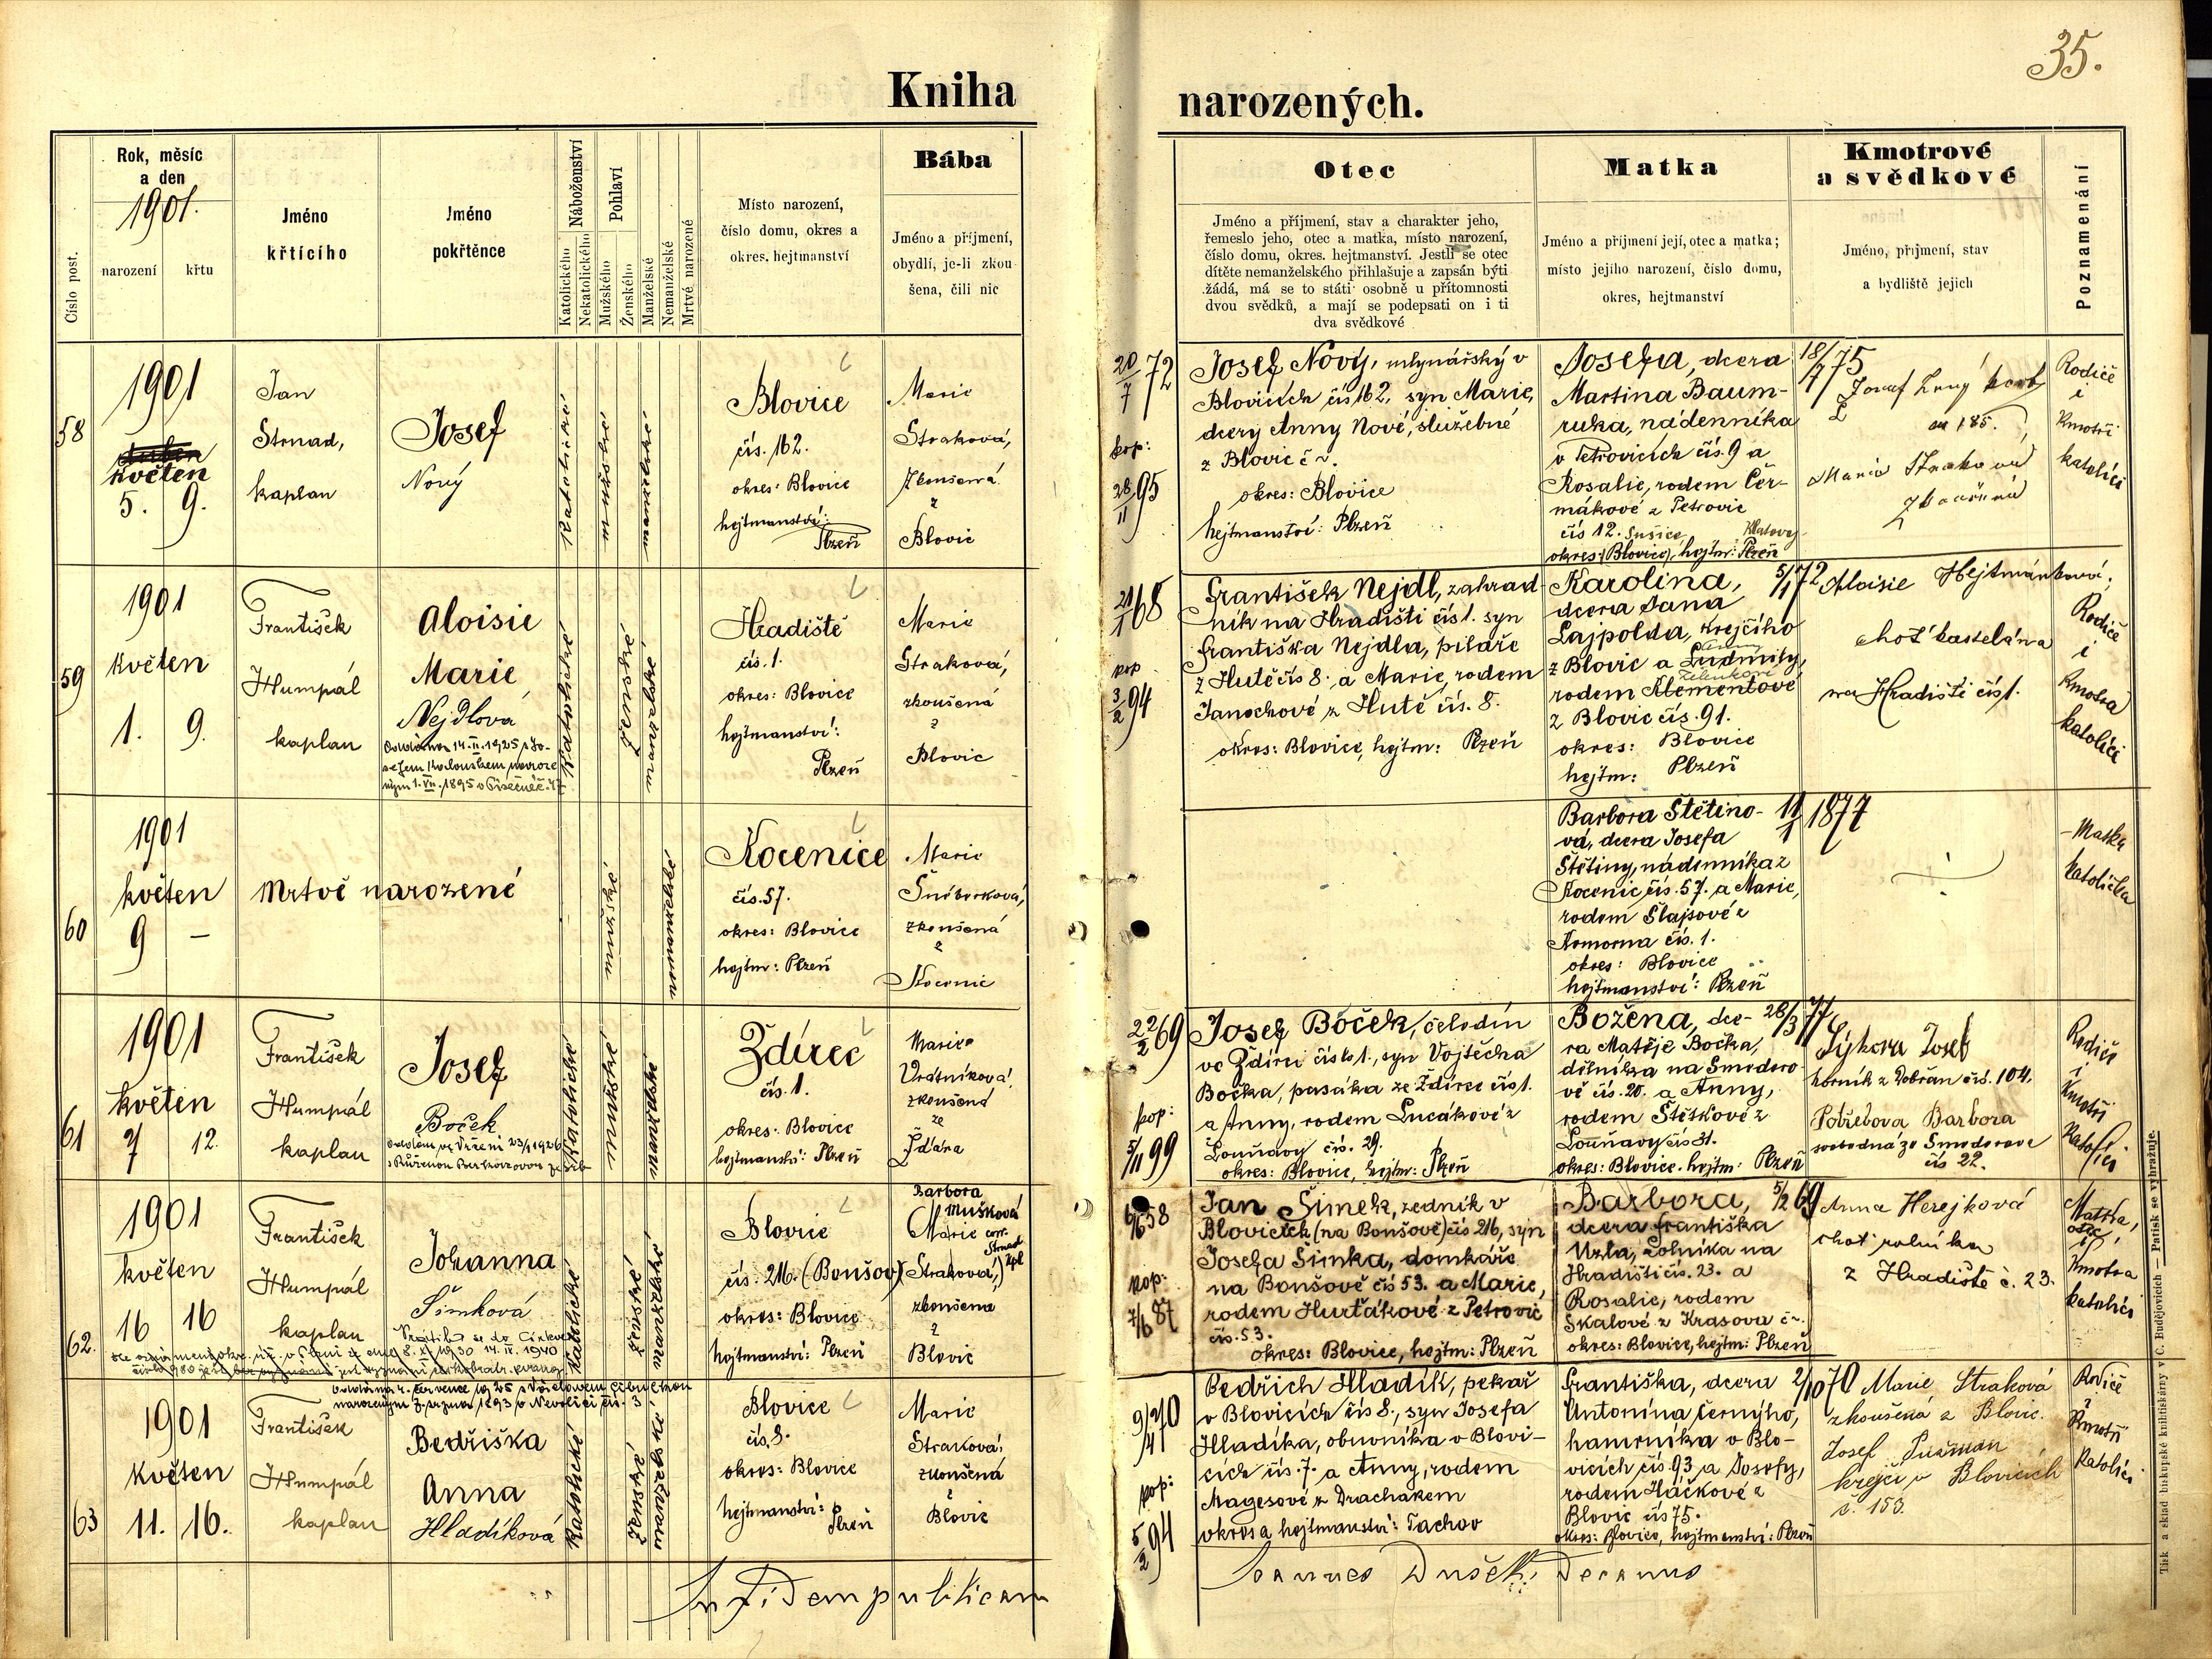 35.
Kniha narozených.
Číslo post.
Rok, měsíc
a den
1901.
narození
křtu
Jméno
křtícího
Jméno
pokřtěnce
Náboženství
Katolického
Nekatolického
Pohlaví
Mužského
Ženského
Manželské
Nemanželské
Mrtvě narozené
Místo narození,
číslo domu, okres a
okres. hejtmanství
Bába
Jméno a příjmení,
obydlí, je-li zkou
šena, čili nic
Otec
Jméno a příjmení, stav a charakter jeho,
řemeslo jeho, otec a matka, místo narození,
číslo domu, okres. hejtmanství. Jestli se otec
dítěte nemanželského přihlašuje a zapsán býti
žádá, má se to státi osobně u přítomnosti
dvou svědků, a mají se podepsati on i ti
dva svědkové
Matka
Jméno a příjmení její, otec a matka;
místo jejího narození, číslo domu,
okres, hejtmanství
Kmotrové
a svědkové
Jméno, příjmení, stav
a bydliště jejich
Poznamenání
58
1901
květen
5. 9.
Jan
Strnad,
kaplan
Josef
Nový
Katolické
mužské
manželské
Blovice
čís. 162.
okres: Blovice
hejtmanství:
Plzeň
Marie
Straková,
zkoušená
z
Blovic
20/7 72
kop:
28/11 95
Josef Nový, mlynářský v
Blovicích čís 162, syn Marie,
dcery Anny Nové, služebné
z Blovic č ~.
okres: Blovice
hejtmanství: Plzeň
Josefa, dcera
Martina Baum-
ruka, nádenníka
v Petrovicích čís. 9 a
Rosalie, rodem Čer-
mákové z Petrovic
čís 12. Sušice, Klatovy
okres: (Blovice), hejtm: Plzeň
18/7 75
Josef
185.
Marie Straková
zkoušená
Rodiče
i
Kmotři
katolíci
59
1901
květen
1. 9.
František
Humpál
kaplan
Aloisie
Marie
Nejdlová
Oddána 14. II. 1925 s Jo-
sefem
ným 1. VII. 1895 v
Katolické
ženské
manželské
Hradiště
čís. 1.
okres: Blovice
hejtmanství:
Plzeň
Marie
Straková,
zkoušená
z
Blovic
21/1 68
kop
3/2 94
František Nejdl, zahrad-
ník na Hradišti čís 1. syn
Františka Nejdla, pilaře
z Hutě čís 8. a Marie, rodem
Janochové z Hutě čís. 8.
okres: Blovice, hejtm: Plzeň
Karolina,
dcera Jana
Lajpolda, krejčího
z Blovic a Ludmily,
Zelenkové
rodem Klementové
z Blovic čís. 91.
okres: Blovice
hejtm: Plzeň
5/1 72
Aloisie Hejtmánková,
choť kastelána
na Hradišti čís 1.
Rodiče
i
Kmotra
katolíci
60
1901
květen
9 –
Mrtvě narozené
mužské
nemanželské
Kocenice
čís. 57.
okres: Blovice
hejtm: Plzeň
Marie
Šnéberková,
zkoušená
z
Kocenic
Barbora Štětino-
vá, dcera Josefa
Štětiny, nádenníka z
Kocenic, čís. 57. a Marie,
rodem Šlajsové z
Komorna čís. 1.
okres: Blovice
hejtmanství: Plzeň
11/1 1877
Matka
katolička
61
1901
květen
7 12.
František
Humpál
kaplan
Josef
Boček
Katolické
mužské
manželské
Ždírec
čís. 1.
okres: Blovice
hejtmanství: Plzeň
Marie
Vrátníková,
zkoušená
ze
Žďára
22/2 69
kop:
5/11 99
Josef Boček, čeledín
ve Ždírci čís. 1., syn Vojtěcha
Bočka, pasáka ze Ždírce čís 1.
a Anny, rodem Lucákové z
Louňovy čís. 29.
okres: Blovice, hejtm: Plzeň
Božena, dce-
ra Matěje Bočka,
dělníka na Smedero
vě čís. 20. a Anny,
rodem Štětkové z
Louňavy čís 31.
okres: Blovice. hejtm: Plzeň
28/3 77
Sýkora Josef
horník z Dobřan čís. 104.
Potřebova Barbora
svobodná ze Smederova
čís 22.
Rodiče
i
Kmotři
Katolíci
62.
1901
květen
16 16
František
Humpál
kaplan
Johanna
Šimková
Katolické
ženské
manželské
Blovice
čís. 216. (Bonšov)
okres: Blovice
hejtmanství: Plzeň
Barbora
Mušková
Marie corr.
Strnad
kpl
Straková,
zkoušená
z
Blovic
6/6 58
kop:
7/6 87
Jan Šimek, zedník v
Blovicích (na Bonšově) čís 216, syn
Josefa Šimka, domkáře
na Bonšově čís 53. a Marie,
rodem Hurťákové z Petrovic
čís. 53.
okres: Blovice, hejtm: Plzeň
Barbora,
dcera Františka
Uzla, rolníka na
Hradišti čís. 23. a
Rosalie, rodem
Skalové z Krasova č ~.
okres: Blovice, hejtm: Plzeň
5/2 69
Anna Herejková
choť rolníka
z Hradiště č. 23.
Matka,
otec,
Kmotra
katolíci
63
1901
květen
11. 16.
František
Humpál
kaplan
Bedřiška
Anna
Hladíková
Katolické
ženské
manželské
Blovice
čís. 8.
okres: Blovice
hejtmanství:
Plzeň
Marie
Straková,
zkoušená
z
Blovic
9/4 70
kop:
5/2 94
Bedřich Hladík, pekař
v Blovicích čís 8., syn Josefa
Hladíka, obuvníka v Blovi-
cích čís. 7. a Anny, rodem
Magesové z Drachakem
okres a hejtmanství: Tachov
Františka, dcera
Antonína Černýho,
hamrníka v Blo-
vicích čís. 93 a Josefy,
rodem Háčkové z
Blovic čís 75.
okres: Blovice, hejtmanství: Plzeň
2/10 70
Marie Straková
zkoušená z Blovic.
Josef
krejčí v Blovicích
č. 153.
Rodiče
i
Kmotři
Katolíci
In fidem publicam
Joannes Dušek, Decanus
Tisk a sklad biskupské knihtiskárny v Č. Budějovicích — Patisk se vyhražuje.